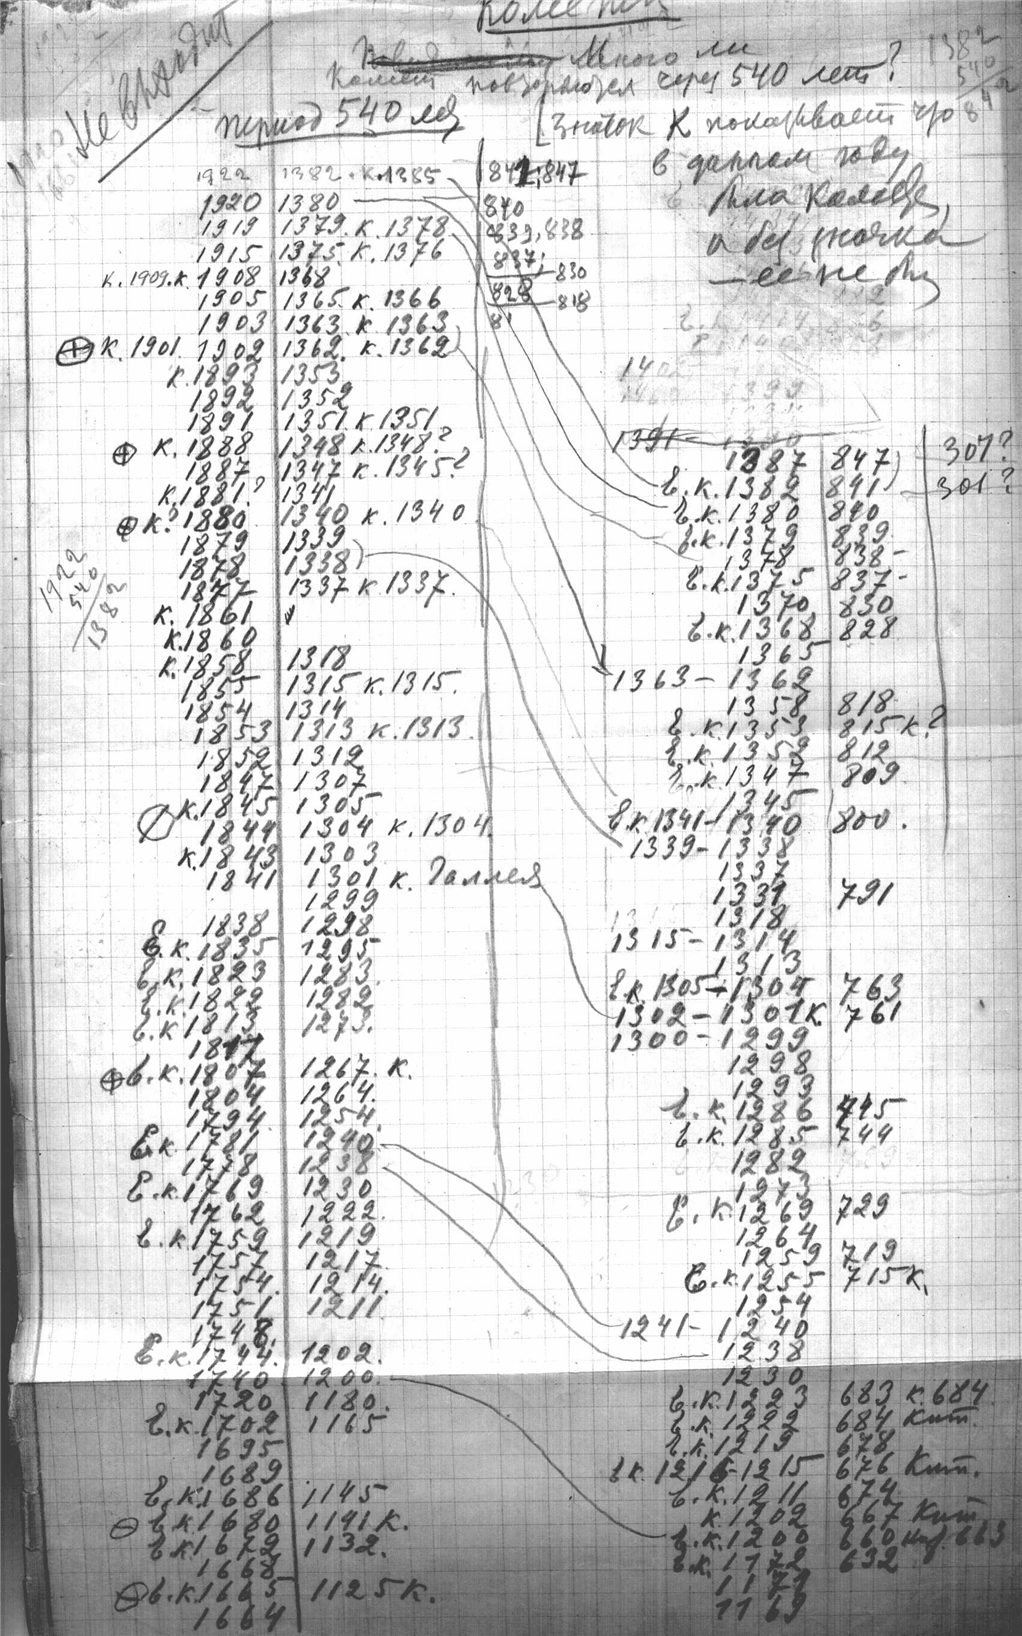 Кометы
Не выходит
Много ли
комет повторяются через 540 лет?
1382
540
842
период 540 лет
[значок К показывает что
в данном году
была Комета,
а без значка
— ее не бы
1922 1382. к.1385 841; 847
1920 1380 840
1919 1379. к. 1378. 839, 838
1915 1375. к. 1376 837; 830
к. 1909. к. 1908 1368 828 818
1905 1365. к. 1366
1903 1363. к. 1363
⊕ К. 1901. 1902 1362. к. 1362
к. 1893 1353
1892 1352
1891 1351. к. 1351
⊕ к. 1888 1348 к. 1348?
1887 1347 к. 1345?
к. 1881? 1341
⊕ к? 1880 1340 к. 1340
1879 1339
1878 1338
1877 1337 к. 1337.
к. 1861
к. 1860
к. 1858 1318
1855 1315 к. 1315.
1854 1314
1853 1313 к. 1313.
1852 1312
1847 1307
к. 1845 1305
1844 1304 к. 1304.
к. 1843 1303
1841 1301 к. Галлея
1299
1838 1298
Е. к. 1835 1295
Е. к. 1823 1283
Е. к. 1822 1282
Е. к. 1813 1273.
1817
⊕ Е. к. 1807 1267. к.
1804 1264.
1794 1254.
Е. к. 1781 1240
1778 1238
Е. к. 1769 1230
1762 1222.
Е. к. 1759 1219
1757 1217
1754. 1214.
1751. 1211
1748.
Е. к. 1744. 1202.
1740 1200
1720 1180.
Е. к. 1702 1165
1695
1689
Е. к. 1686 1145
⊖ Е. к. 1680 1141 к.
Е. к. 1672 1132.
1668
⊖ Е. к. 1665 1125 к.
1664
1922
540
1382
1391
1387 847 307?
Е. к. 1382 841 301?
Е. к. 1380 840
Е. к. 1379 839
1378 838-
Е. к. 1375 837-
1370 830
Е. к. 1368 828
1365
1363 - 1362
1358 818
Е. к. 1353 815 к?
Е. к. 1352 812
Е. к. 1347 809
1345
Е. к. 1341 - 1340 800.
1339 - 1338
1337
1331 791
1318
1315 - 1314
1313
Е. к. 1305 - 1304 763
1302 - 1301 к. 761
1300 - 1299
1298
1293
Е. к. 1286 745
Е. к. 1285 744
1282
1273
Е. к. 1269 729
1264
1259 719
Е. к. 1255 715 к.
1254
1241 - 1240
1238
1230
Е. к. 1223 683 к. 684
Е. к. 1222 684 Кит.
Е. к. 1219 678
Е. к. 1216 - 1215 676 Кит.
Е. к. 1211 674
к. 1202 667 Кит.
Е. к. 1200 660 663
Е. к. 1172 632
1171
1169